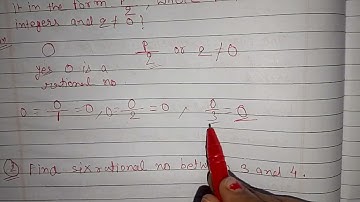 it in the form p/2, where
integers and 2 ≠ 0?
0 p/2 or 2 ≠ 0
yes 0 is a
rational no
0 = 0/1 = 0, 0 = 0/2 = 0 , 0/3 = 0
② Find six rational no between 3 and 4.